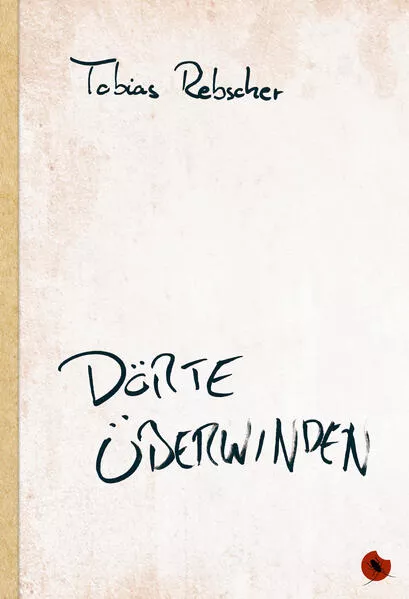 Tobias Rebscher
DÖRTE
ÜBERWINDEN